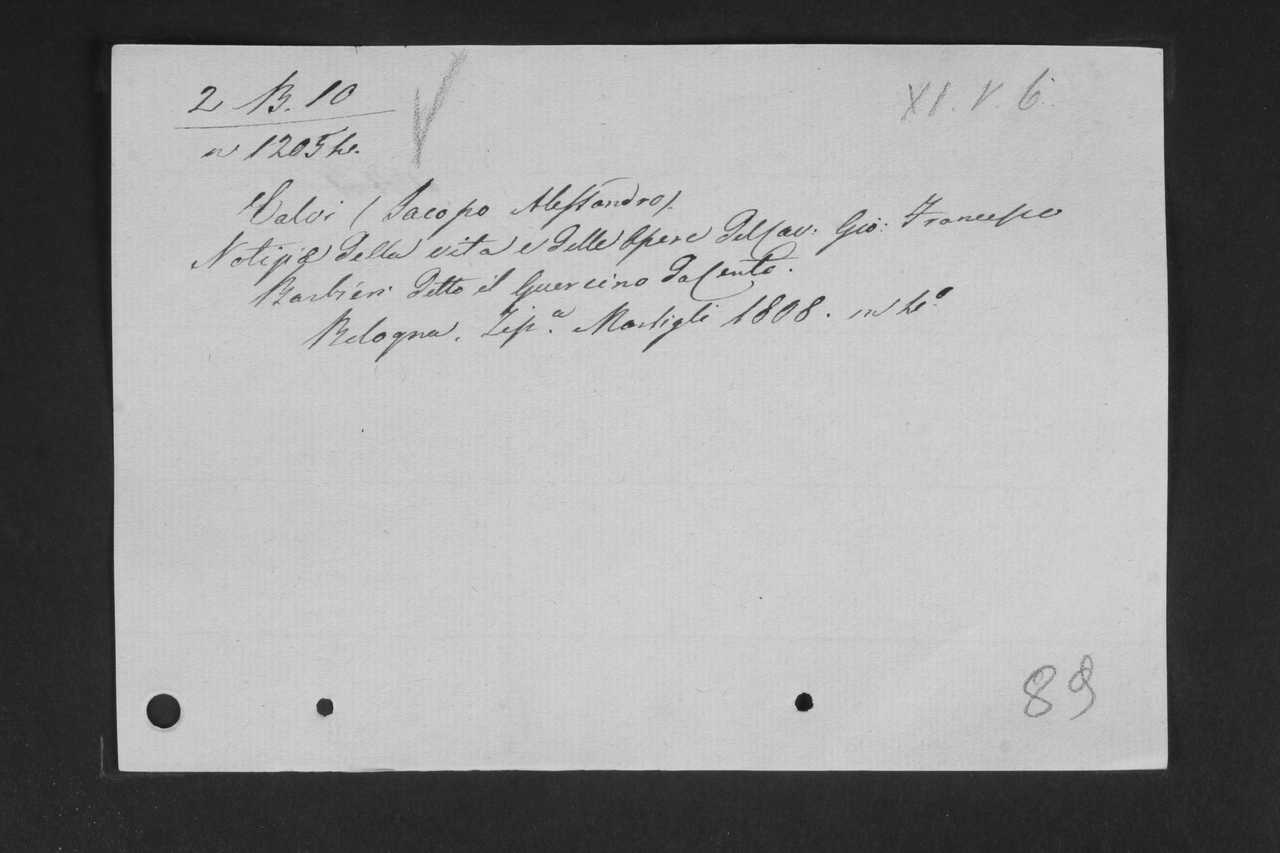 2 B. 10
XI. V. 6.
n 12054.
Calvi (Jacopo Alessandro).
Notizie della vita e delle Opere del Cav: Gio: Francesco
Barbieri detto il Guercino da Cento.
Bologna. Tip.ª Marsigli 1808. in 4.º
89